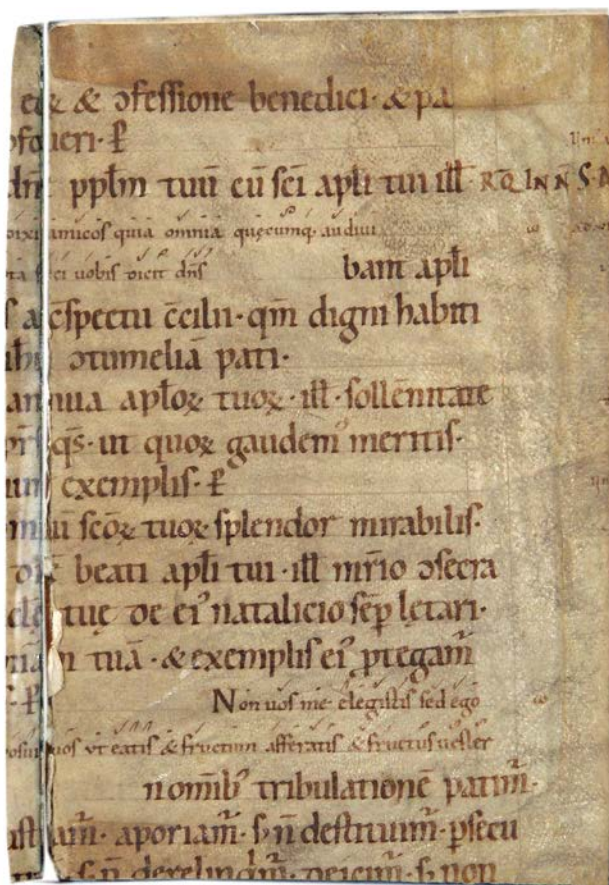 & ɔfessione benedici· & pa
ueri· ꝑ
pplm tuū cū sci apli tui ill RQ INN S
amicos quia omnia quęcumq· audiui
uobis dicit dn̄s bant apli
c̄spectu c̄cilii· qm̄ digni habiti
ɔtumeliā pati·
aploꝝ tuoꝝ· ill· sollēnitate
q̄s· ut quoꝝ gaudem᷒ meritis·
exemplis· ꝑ
scōꝝ tuoꝝ splendor mirabilis·
beati apli tui· ill mr̄io ɔsecra
tuę de ei᷒ natalicio sēp lętari·
tuā· & exemplis ei᷒ ꝓtegam̄
Non uos me elegistis sed ego
uos ut eatis & fructum afferatis & fructus uester
nomīb᷒ tribulationē patim̄·
am̄· aporiam̄· s; n̄ destituim̄· ꝑsecu
s; n̄ derelinqm̄· deicim̄· s; non